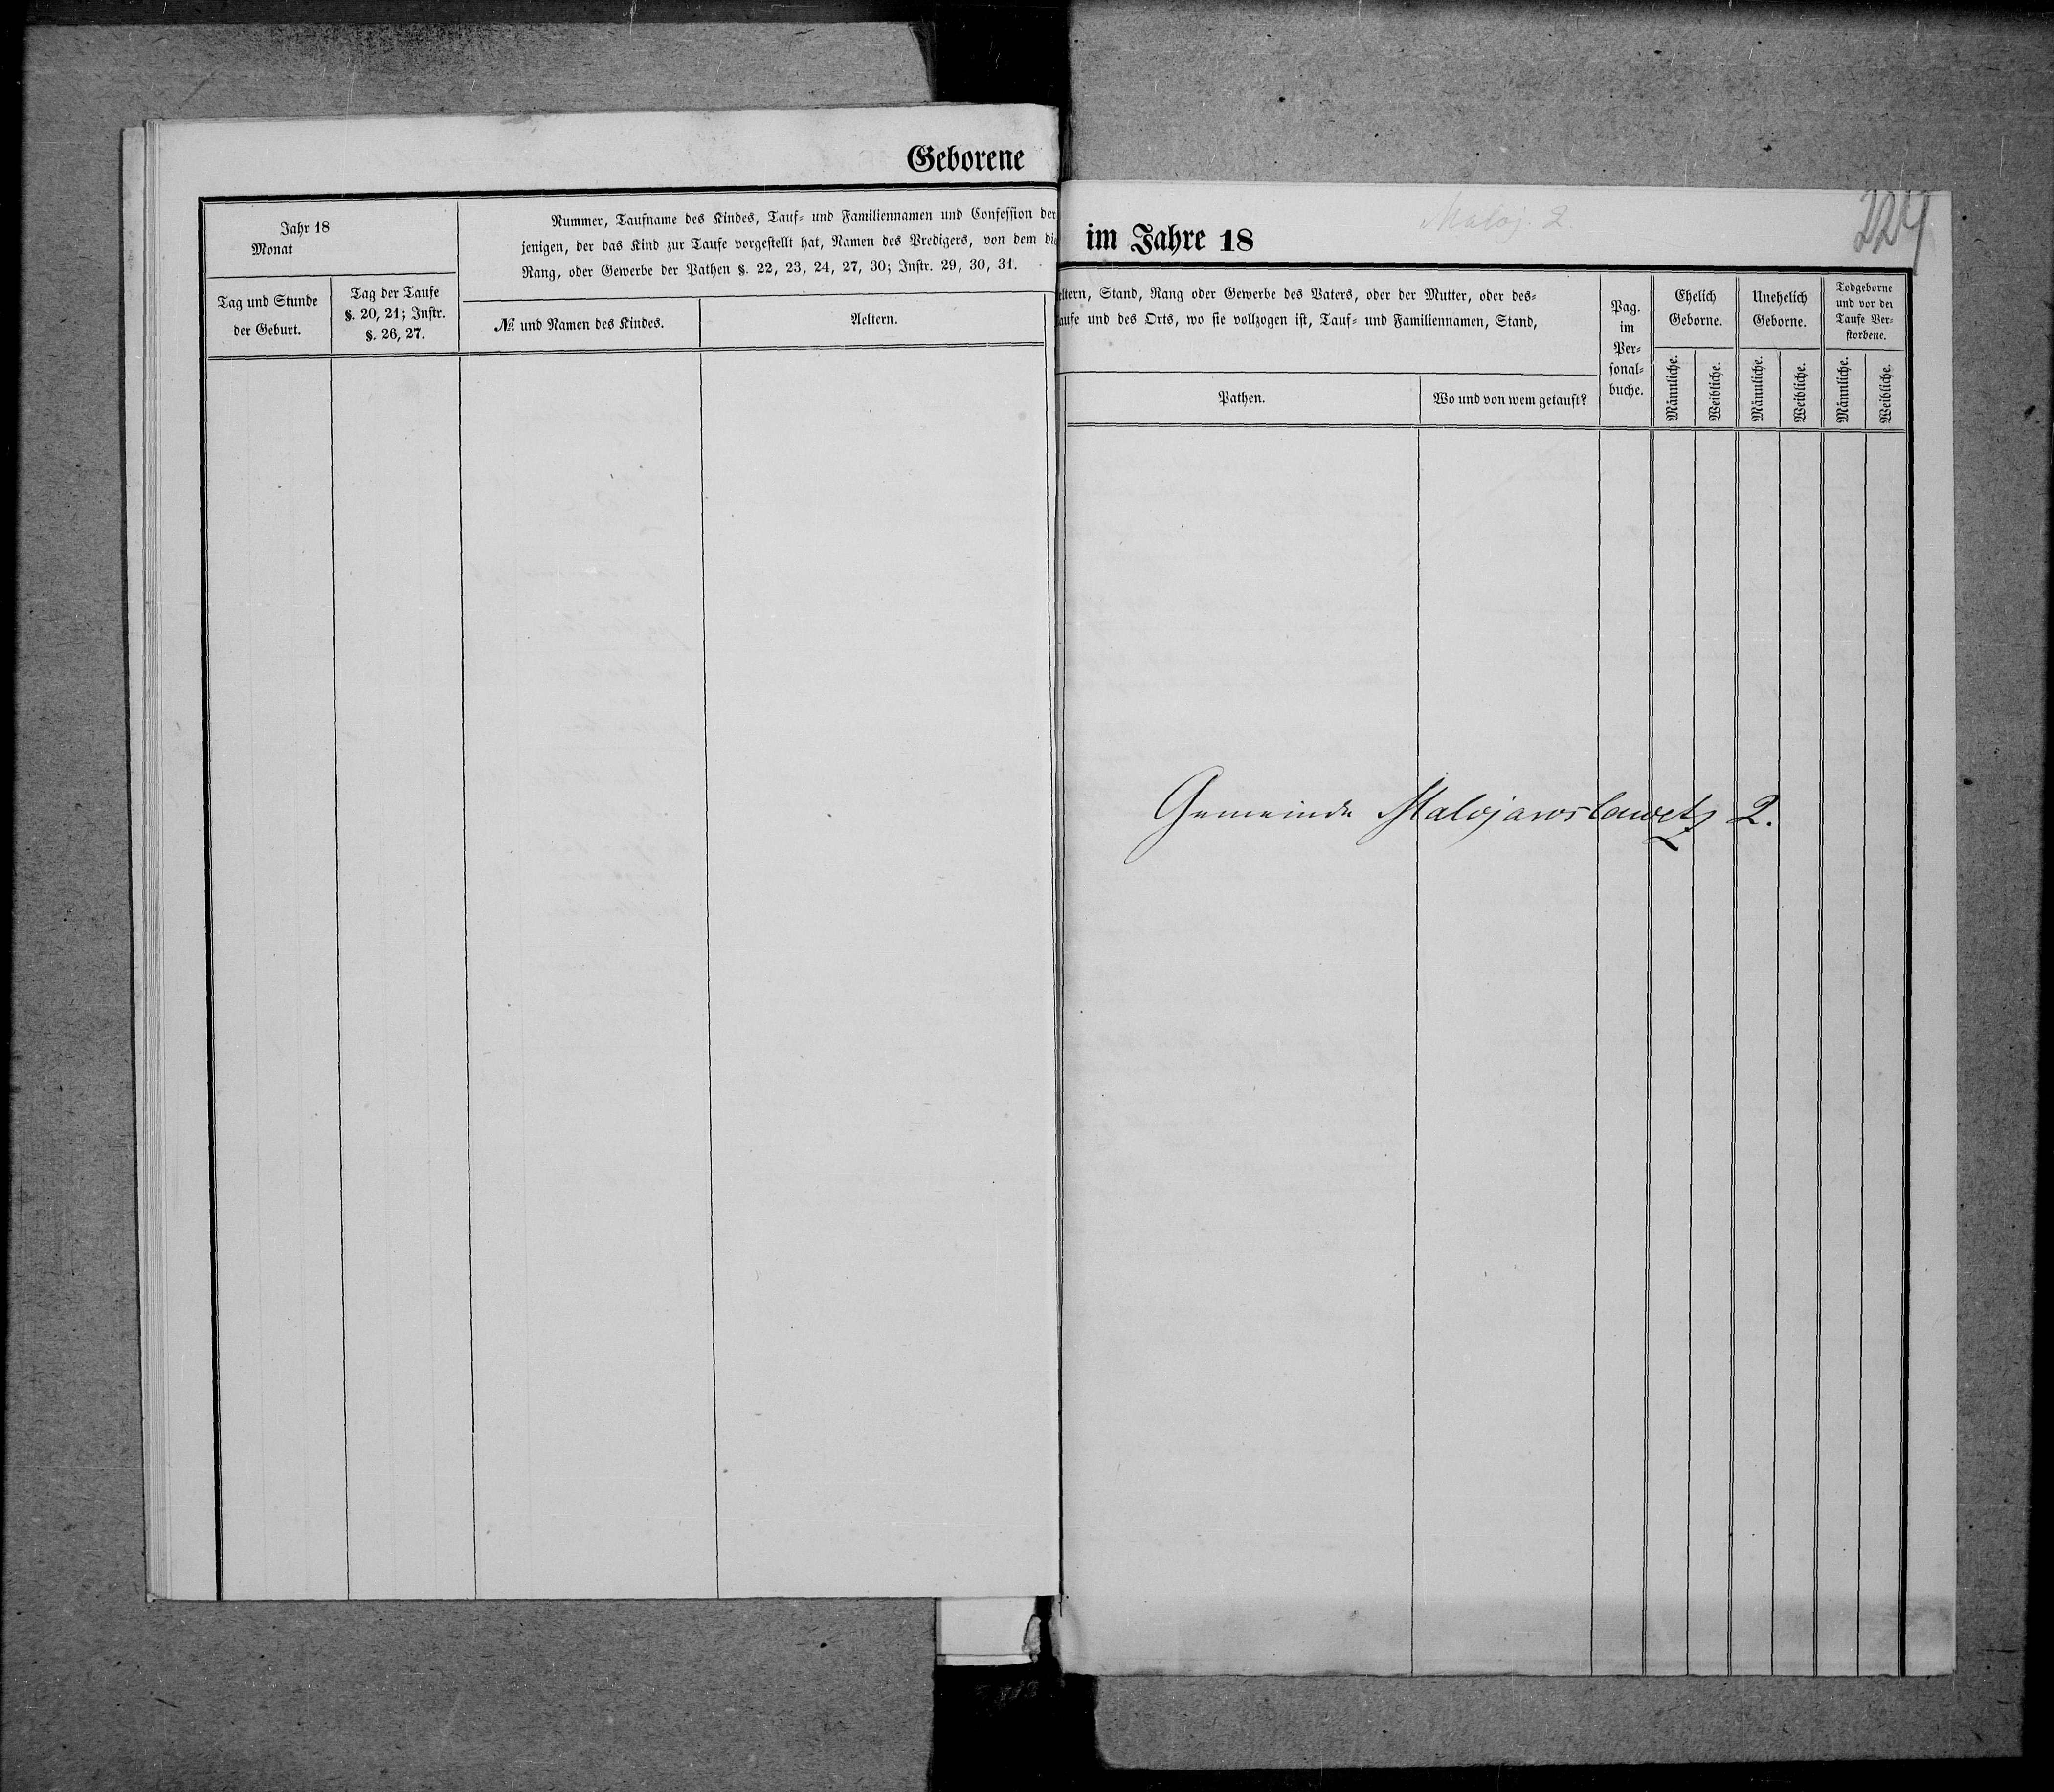 Geborene
Jahr 18
Monat
Nummer, Taufname des Kindes, Tauf- und Familiennamen und Confession der
jenigen, der das Kind zur Taufe vorgestellt hat, Namen des Predigers, von dem die
Rang, oder Gewerbe der Pathen §. 22, 23, 24, 27, 30; Instr. 29, 30, 31.
Tag und Stunde
der Geburt.
Tag der Taufe
§. 20, 21; Instr.
§. 26, 27.
№ und Namen des Kindes.
Aeltern.
Maloj. 2
224
im Jahre 18
eltern, Stand, Rang oder Gewerbe des Vaters, oder der Mutter, oder des-
aufe und des Orts, wo sie vollzogen ist, Tauf- und Familiennamen, Stand,
Pathen.
Wo und von wem getauft?
Pag.
im
Per-
sonal-
buche.
Ehelich
Geborne.
Unehelich
Geborne.
Todgeborne
und vor der
Taufe Ver-
storbene.
Männliche.
Weibliche.
Männliche.
Weibliche.
Männliche.
Weibliche.
Gemeinde Malojaroslawetz 2.